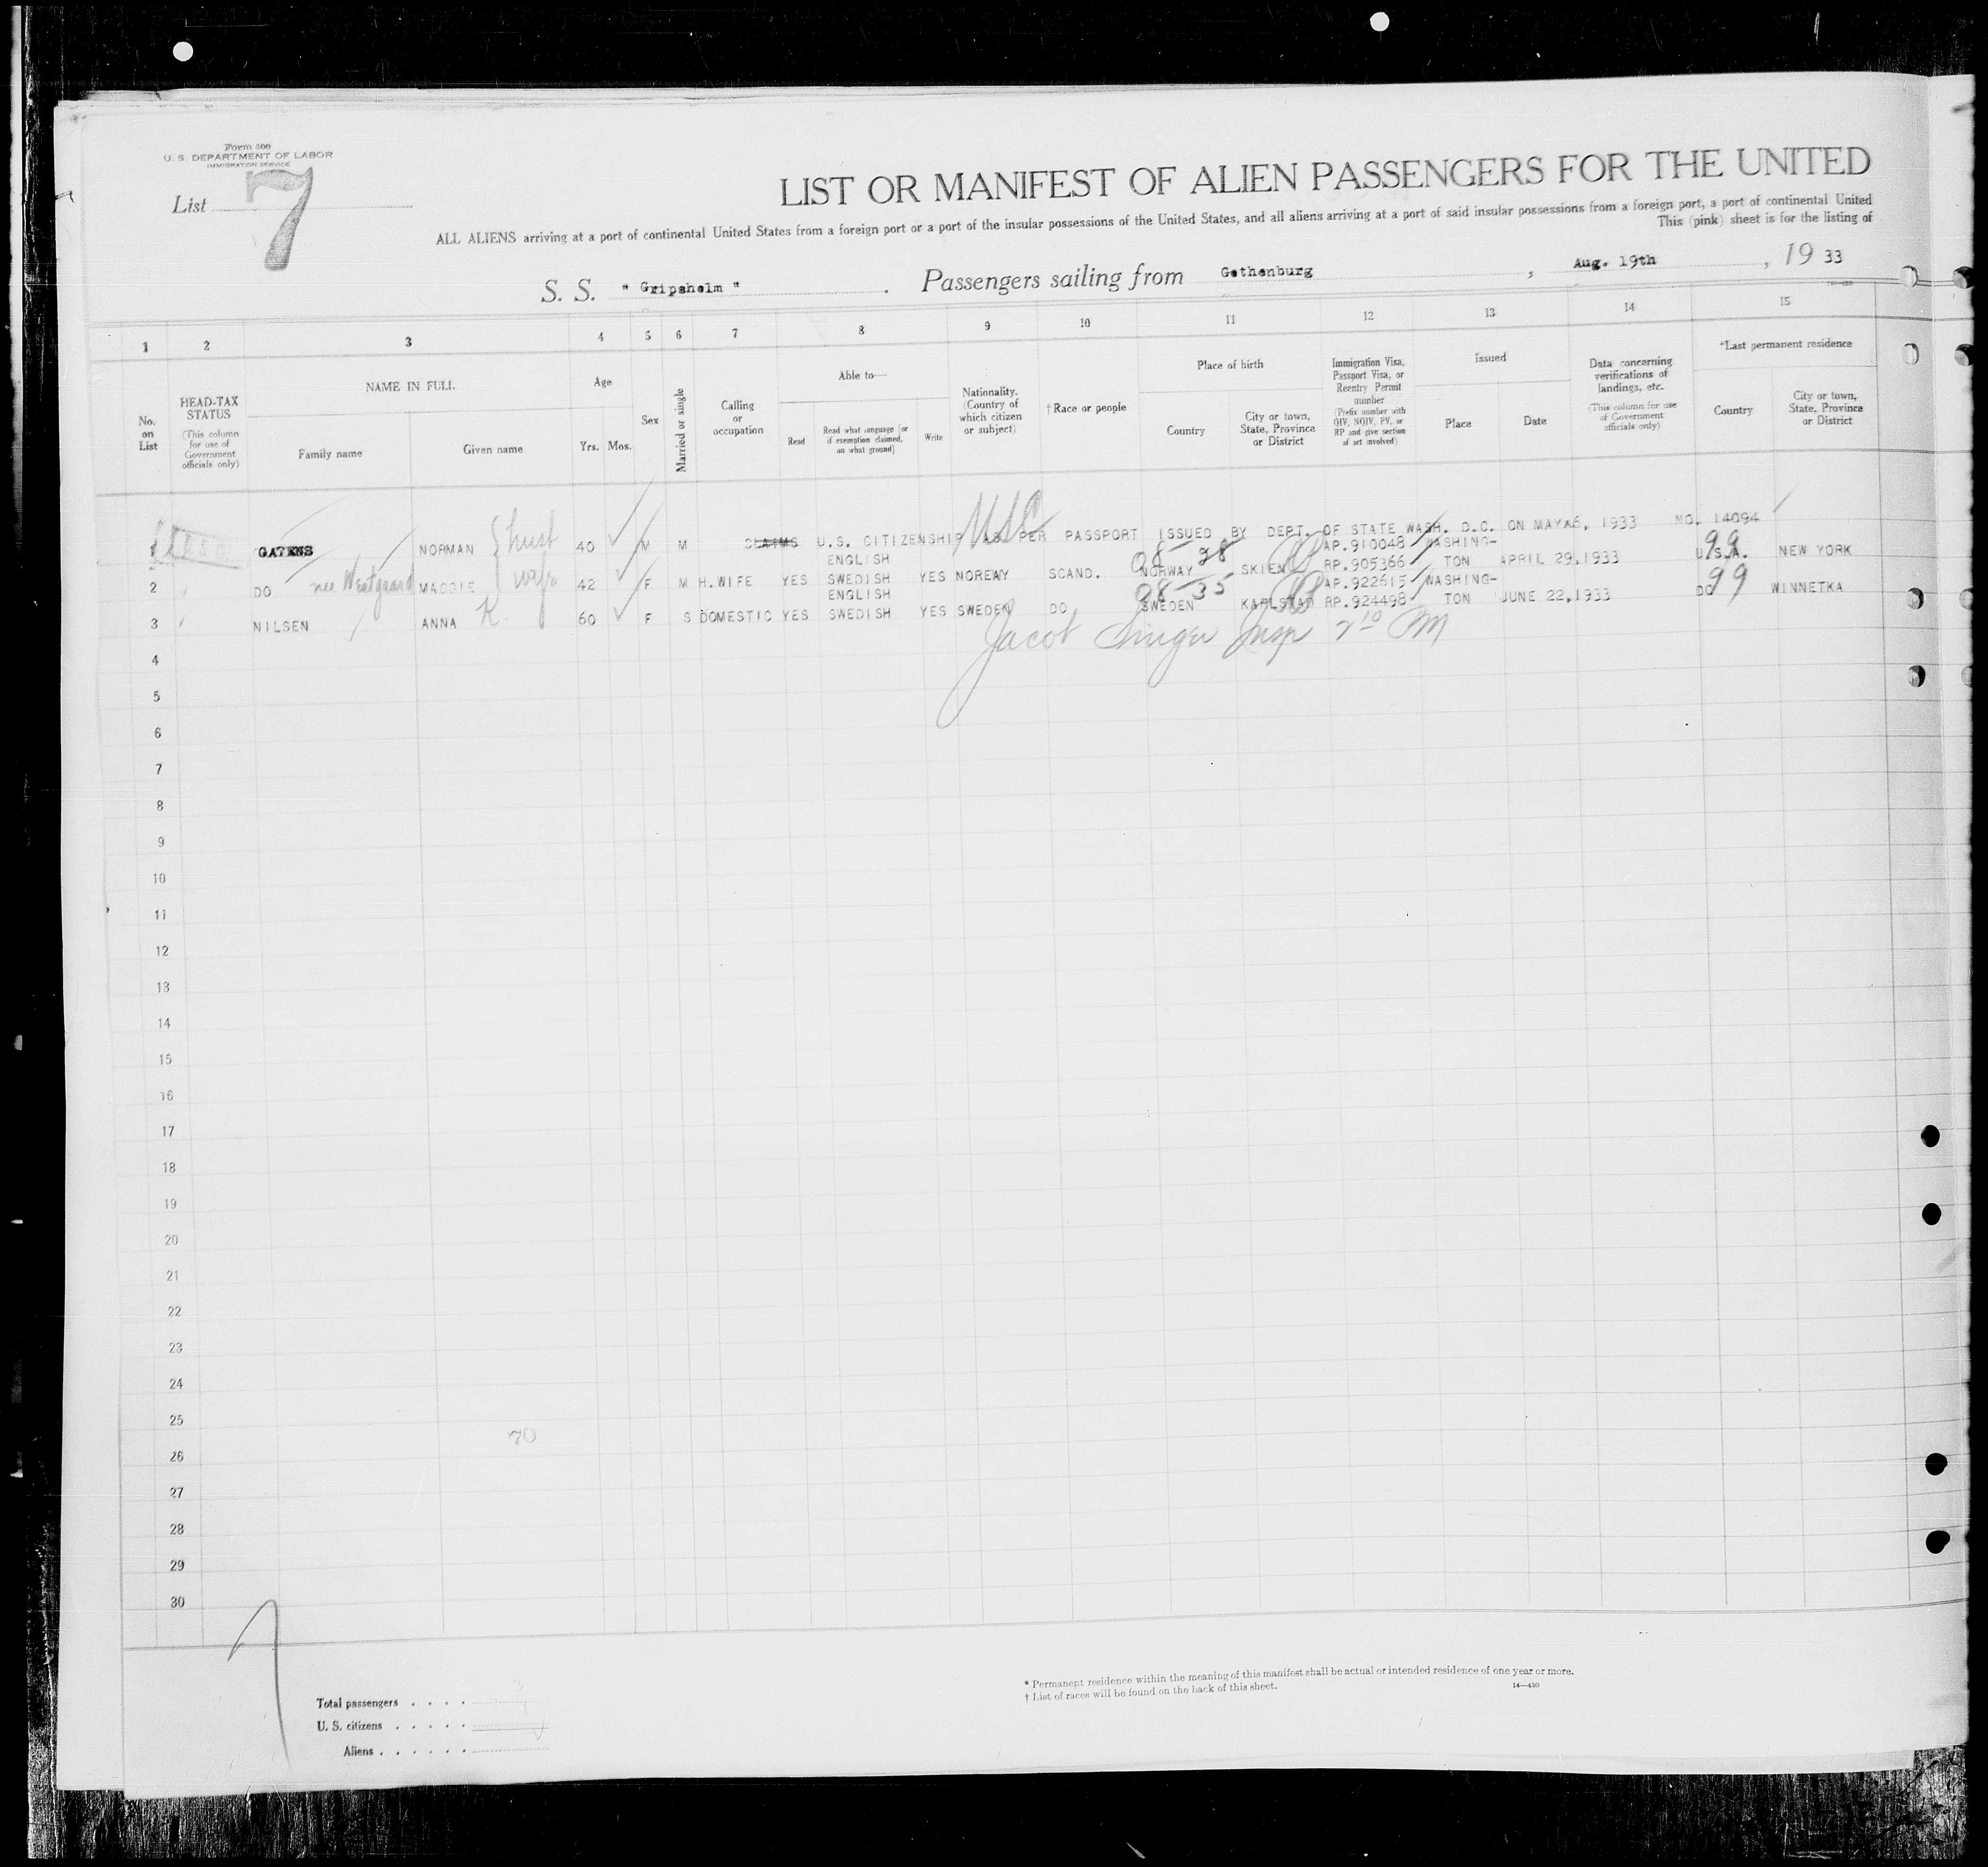 Form 500
U. S. DEPARTMENT OF LABOR
IMMIGRATION SERVICE
List 7
LIST OR MANIFEST OF ALIEN PASSENGERS FOR THE UNITED
ALL ALIENS arriving at a port of continental United States from a foreign port or a port of the insular possessions of the United States, and all aliens arriving at a port of said insular possessions from a foreign port, a port of continental United
This (pink) sheet is for the listing of
S. S. " Gripsholm " . Passengers sailing from Gothenburg , Aug. 19th , 19 33
1 2 3 4 5 6 7 8 9 10 11 12 13 14 15
No. on List
HEAD-TAX STATUS
(This column for use of Government officials only)
NAME IN FULL
Family name Given name
Age
Yrs. Mos.
Sex
Married or single
Calling or occupation
Able to—
Read
Read what language [or if exemption claimed, on what ground]
Write
Nationality. (Country of which citizen or subject)
† Race or people
Place of birth
Country
City or town, State, Province or District
Immigration Visa, Passport Visa, or Reentry Permit number
(Prefix number with QIV, NQIV, PV, or RP and give section of act involved)
Issued
Place Date
Data concerning verifications of landings, etc.
(This column for use of Government officials only)
*Last permanent residence
Country
City or town, State, Province or District
GATENS NORMAN hust 40 M M CLAIMS U.S. CITIZENSHIP AS PER PASSPORT ISSUED BY DEPT. OF STATE WASH. D.C. ON MAY 6, 1933 NO. 14094
USC
ENGLISH 98 28 AP.910048 WASHING- 99
2 DO nee Westgaard MAGGIE wife 42 F M H.WIFE YES SWEDISH YES NORWAY SCAND. NORWAY SKIEN RP.905366 TON APRIL 29,1933 U.S.A. NEW YORK
ENGLISH 98 35 AP.922615 WASHING- 99
3 NILSEN ANNA K. 60 F S DOMESTIC YES SWEDISH YES SWEDEN DO SWEDEN KARLSTAD RP.924498 TON JUNE 22,1933 DO WINNETKA
Jacob Singer Insp 2 10 PM
4
5
6
7
8
9
10
11
12
13
14
15
16
17
18
19
20
21
22
23
24
25
70
26
27
28
29
30
Total passengers . . . .
U. S. citizens . . . . .
Aliens . . . . . .
* Permanent residence within the meaning of this manifest shall be actual or intended residence of one year or more.
† List of races will be found on the back of this sheet.
14—430